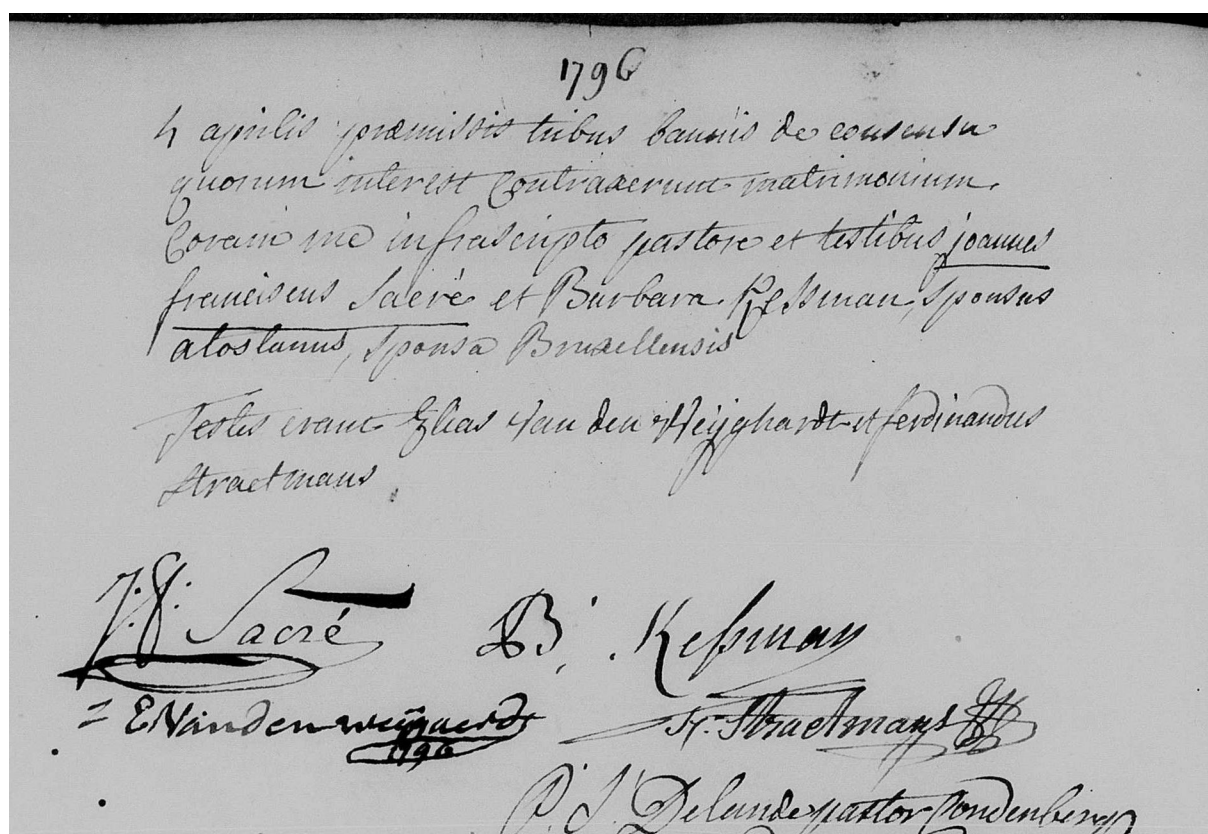 1796
4 aprilis præmissis tribus bannis de consensu
quorum interest Contraxerunt matrimonium
Coram me infrascripto pastore et testibus joannes
franciscus Sacré et Barbara Kessman, sponsus
alostanus, sponsa Bruxellensis
Testes erant Elias Van den Weijghardt et ferdinandus
Straetmans
J: F: Sacré B. Kessman
= E Vanden weijgaerdt F. Straetmans
1796
P. J. Delande pastor Condenberg